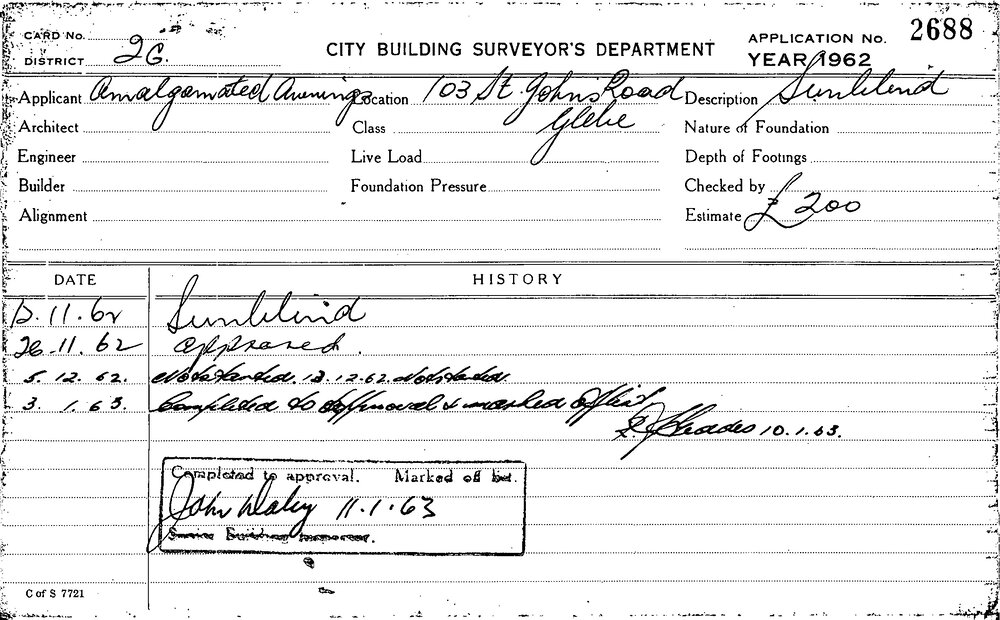 CARD No.
DISTRICT 26.
CITY BUILDING SURVEYOR'S DEPARTMENT
APPLICATION No. 2688
YEAR 1962
Applicant Amalgamated Awnings Location 103 St. Johns Road Description Sunblind
Architect Class Glebe Nature of Foundation
Engineer Live Load Depth of Footings
Builder Foundation Pressure Checked by
Alignment Estimate £ 200
DATE HISTORY
13.11.62 Sunblind
26.11.62 approved.
5.12.62. Not started. 13.12.62. Not started
3.1.63. Completed to approval & marked off list
10.1.63.
Completed to approval. Marked off list.
John Daley 11.1.63
Senior Building
C of S 7721